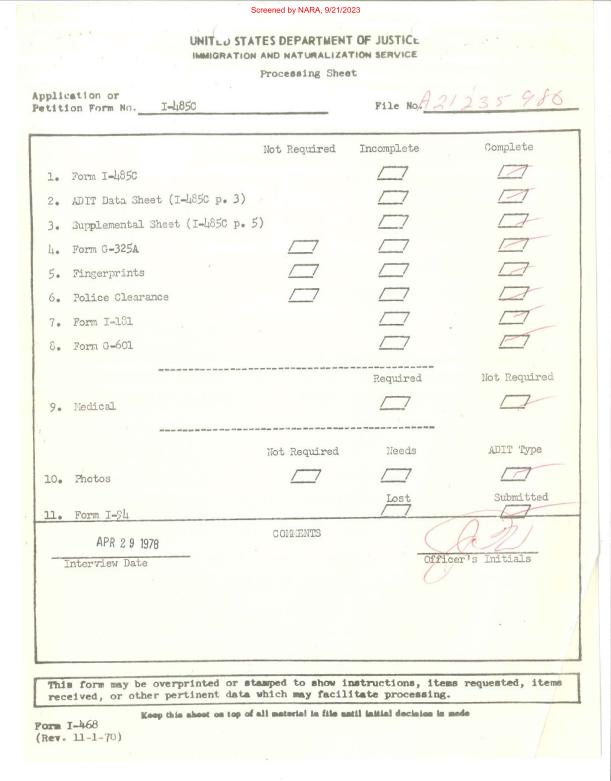 Screened by NARA, 9/21/2023
UNITED STATES DEPARTMENT OF JUSTICE
IMMIGRATION AND NATURALIZATION SERVICE
Processing Sheet
Application or
Petition Form No. I-485C File No. A21 235 986
Not Required Incomplete Complete
1. Form I-485C
2. ADIT Data Sheet (I-485C p. 3)
3. Supplemental Sheet (I-485C p. 5)
4. Form G-325A
5. Fingerprints
6. Police Clearance
7. Form I-181
8. Form G-601
Required Not Required
9. Medical
Not Required Needs ADIT Type
10. Photos
Lost Submitted
11. Form I-94
COMMENTS
APR 29 1978
Interview Date Officer's Initials
This form may be overprinted or stamped to show instructions, items requested, items
received, or other pertinent data which may facilitate processing.
Keep this sheet on top of all material in file until initial decision is made
Form I-468
(Rev. 11-1-70)